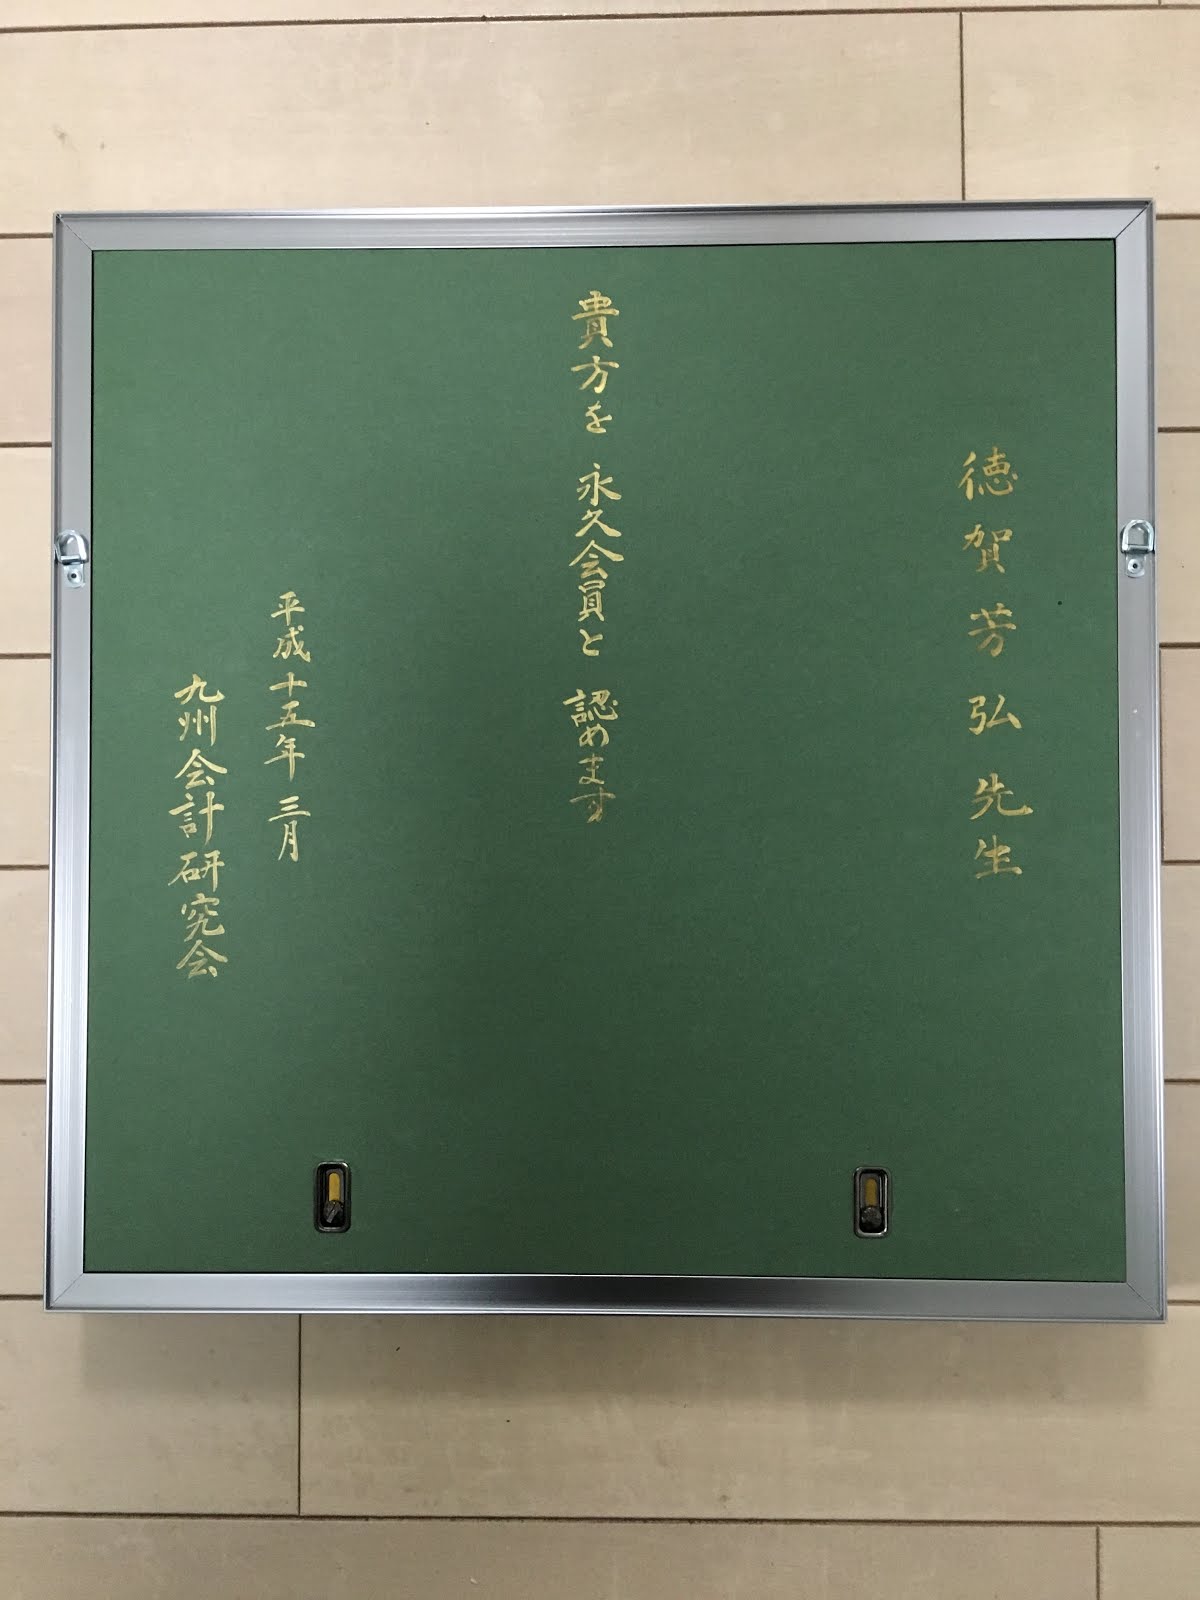 徳賀芳弘先生
貴方を 永久会員と 認めます
平成十五年 三月
九州会計研究会